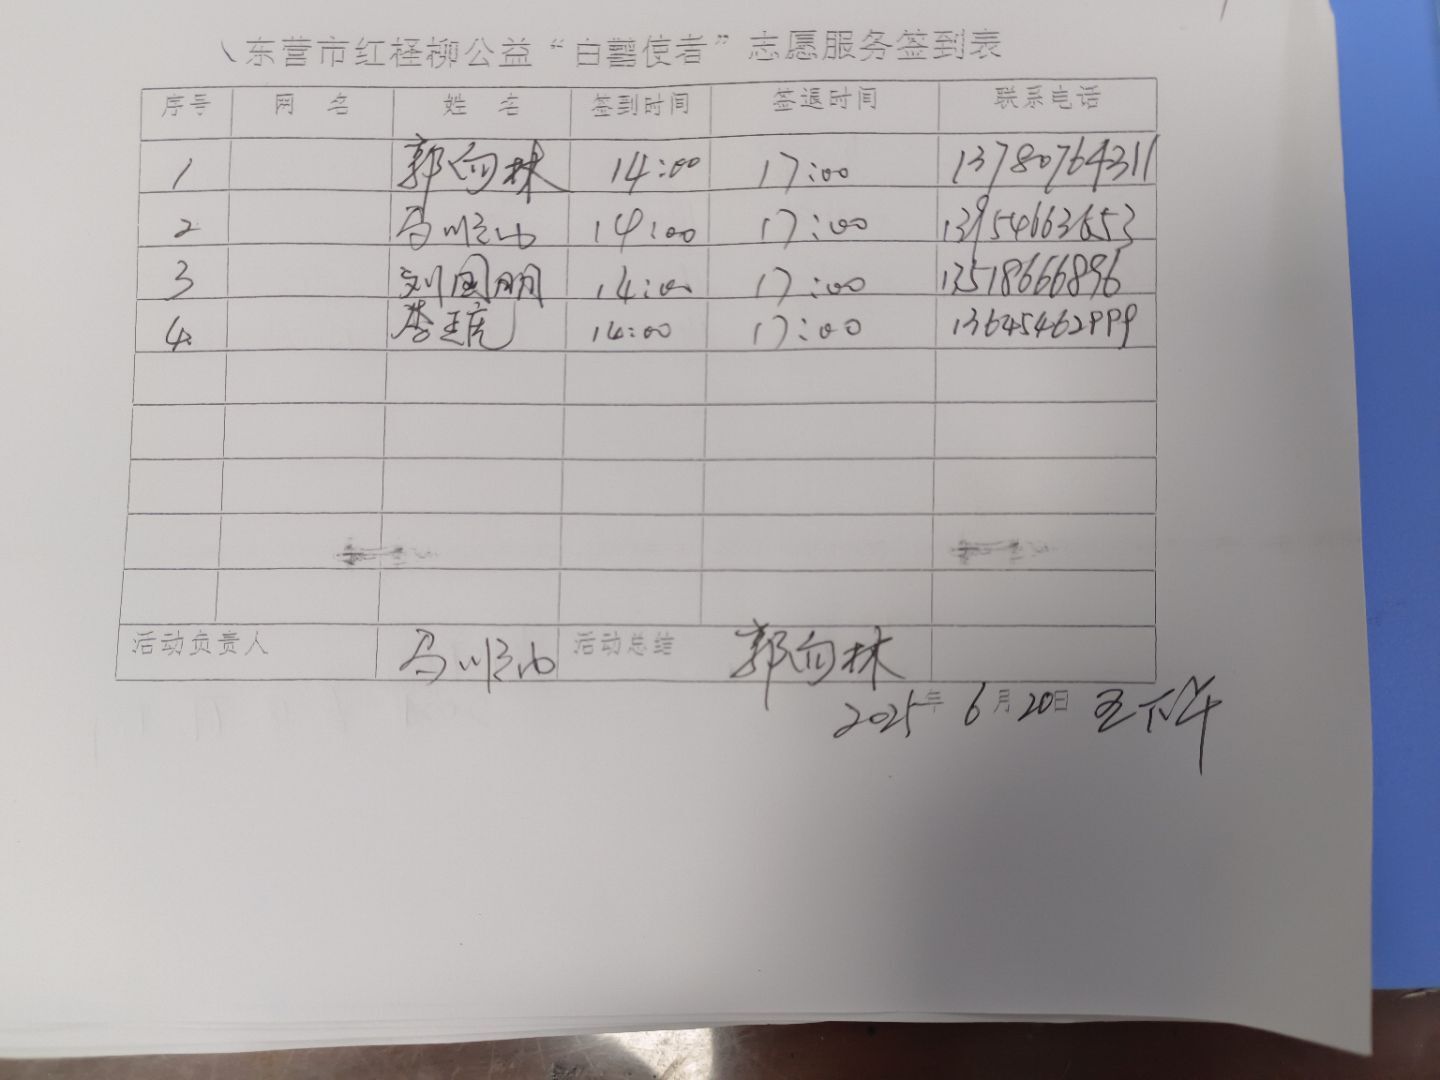 东营市红柽柳公益“白鹳使者”志愿服务签到表
序号 网 名 姓 名 签到时间 签退时间 联系电话
1 郭向林 14:00 17:00 13780764311
2 马顺 14:00 17:00 13954663653
3 刘国朋 14:00 17:00 13518666896
4. 李 14:00 17:00 13645462999
活动负责人 马顺 活动总结 郭向林
2025年 6月20日 王